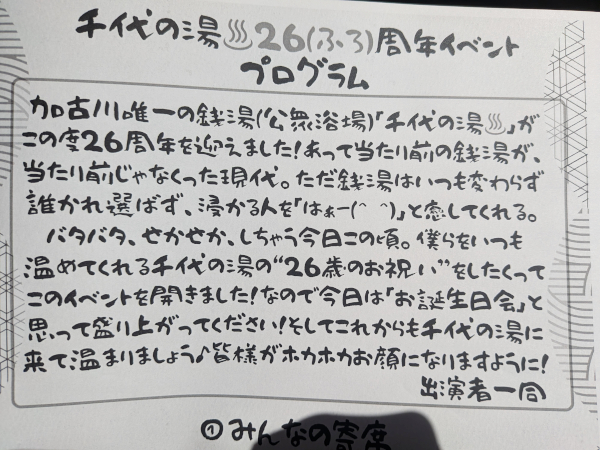 千代の湯♨26(ふろ)周年イベント
プログラム
加古川唯一の銭湯(公衆浴場)「千代の湯♨」が
この度26周年を迎えました!あって当たり前の銭湯が、
当たり前じゃなくった現代。ただ銭湯はいつも変わらず
誰かれ選ばず、浸かる人を「はぁー(^ ^)」と癒してくれる。
バタバタ、せかせか、しちゃう今日この頃。僕らをいつも
温めてくれる千代の湯の“26歳のお祝い”をしたくって
このイベントを開きました!なので今日は「お誕生日会」と
思って盛り上がってください!そしてこれからも千代の湯に
来て温まりましょう♪皆様がホカホカお顔になりますように!
出演者一同
①みんなの寄席